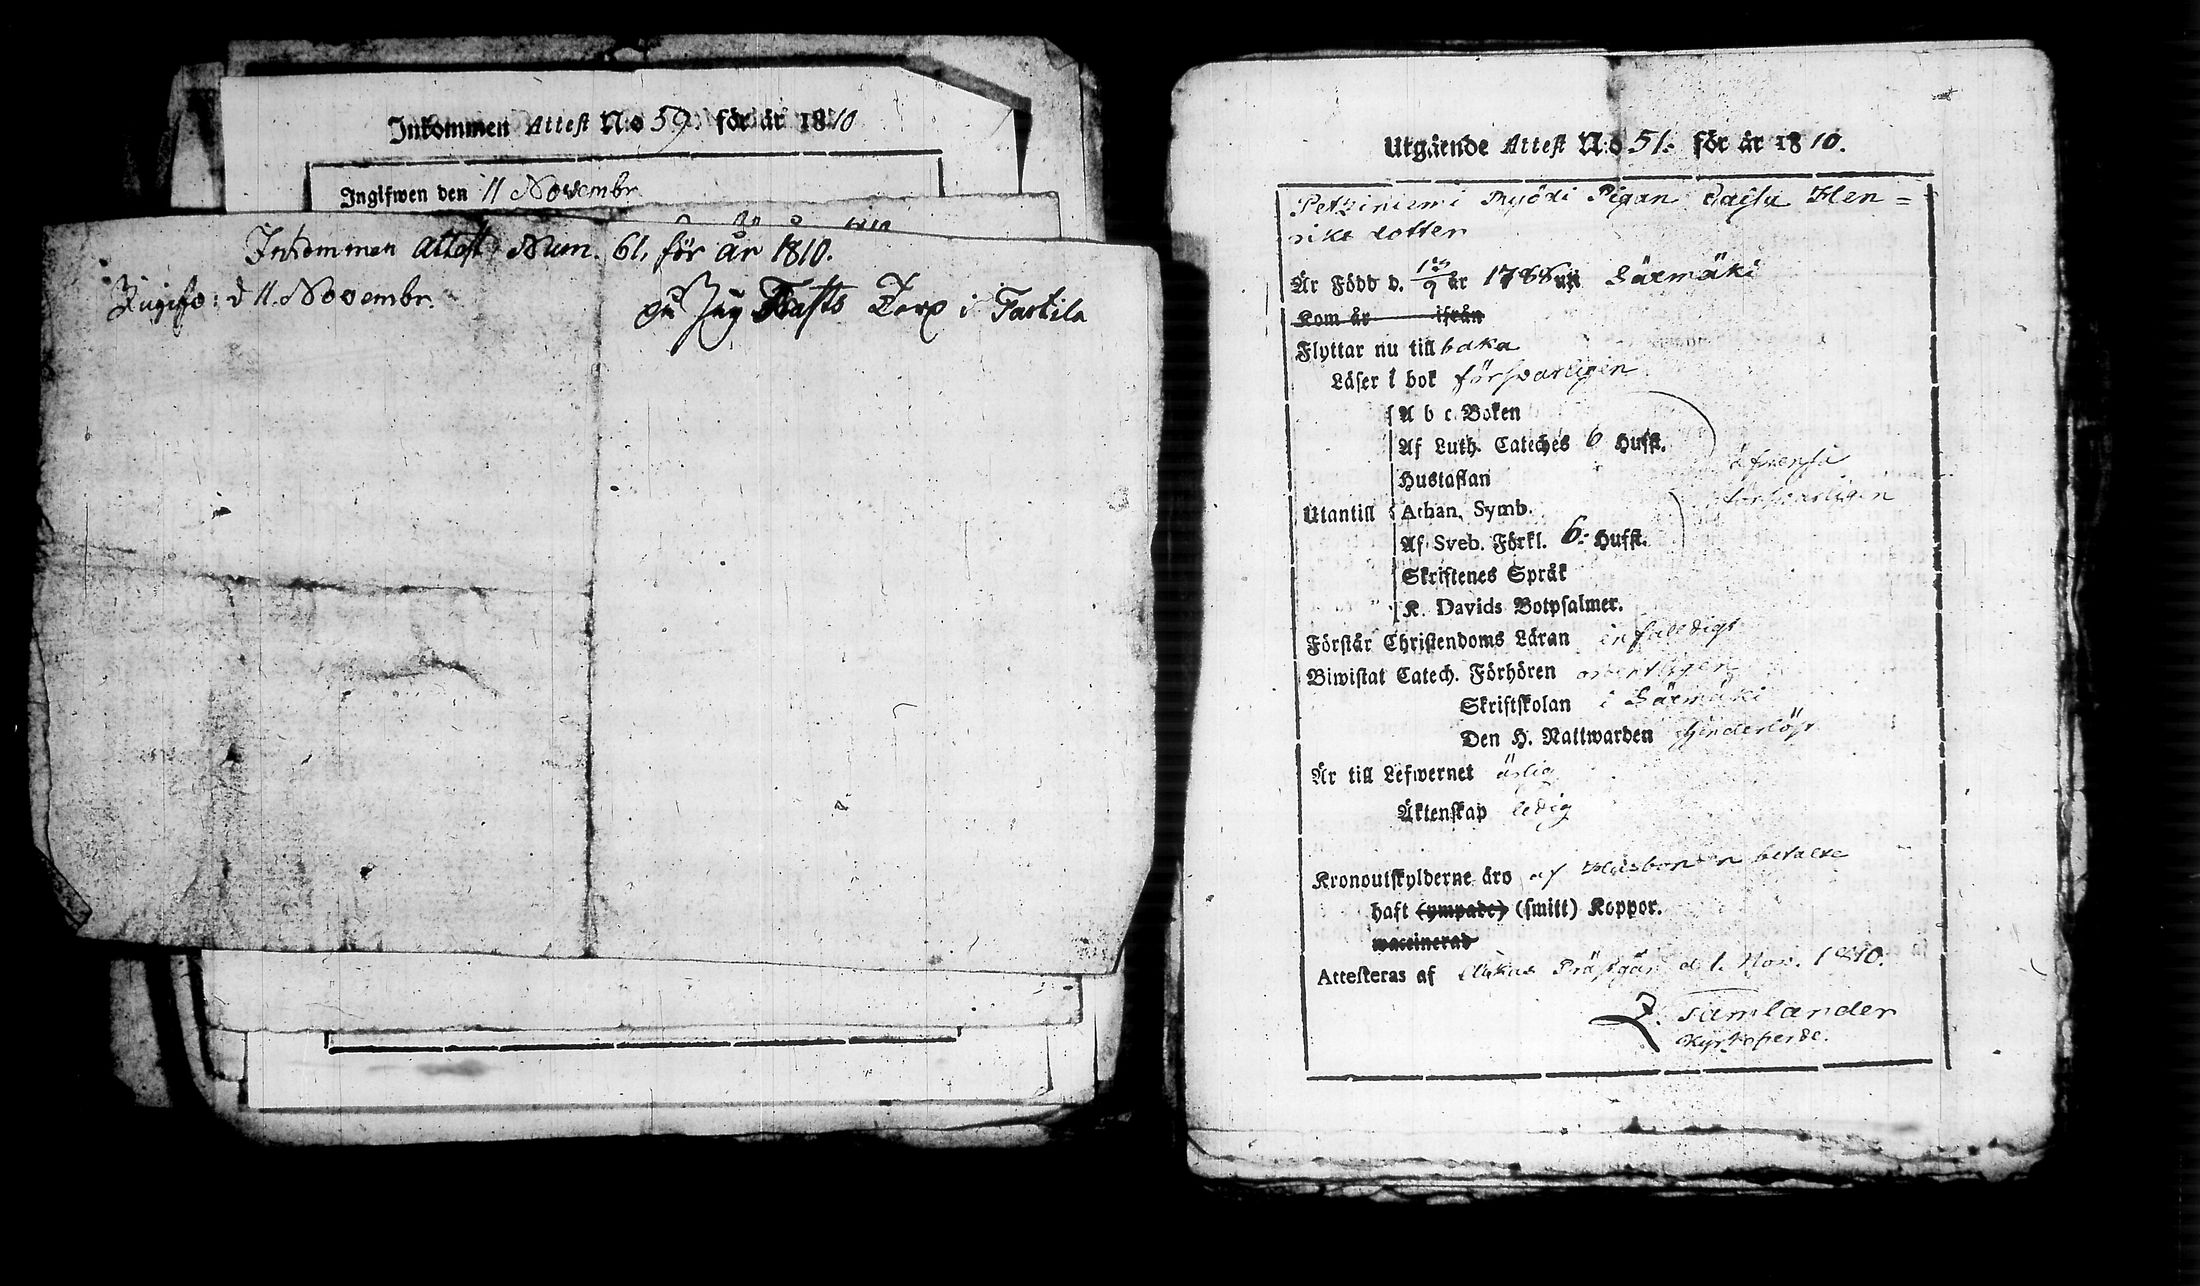 Inkommen Attest N:o 59. för år 1810
Inglfwen den 11 Novembr
Inkommen attest Num. 61, för år 1810.
d 11. Novembr.
Torp i Tartila
Utgående Attest N:o 51. för år 1810.
Petziniemi Pigan Cajsa Hen=
riks dotter
Är Född d. år 1788 uti Särmäki
Kom år ifrån
Flyttar nu tillbaka
Läser i bok försvarligen
A b c Boken
Af Luth. Cateches 6 Hufst.
Hustaflan
försvarligen
Utantill Athan. Symb.
Af Sveb. Förkl. 6: Hufst.
Skriftenes Språk
K. Davids Botpsalmer.
Förstår Christendoms Läran enfaldigt
Biwistat Catech. Förhören ordentligen
Skriftskolan i Särmäki
Den H. Nattwarden hinderlöst
Är till Lefwernet ärlig
Äktenskap ledig
Kronoutskylderne äro af Husbonden betalte
haft (ympade) (smitt) Koppor.
waccinerad
Attesteras af Prästgård d. 1. Nov. 1810.
Tamlander
Kyrkoherde.